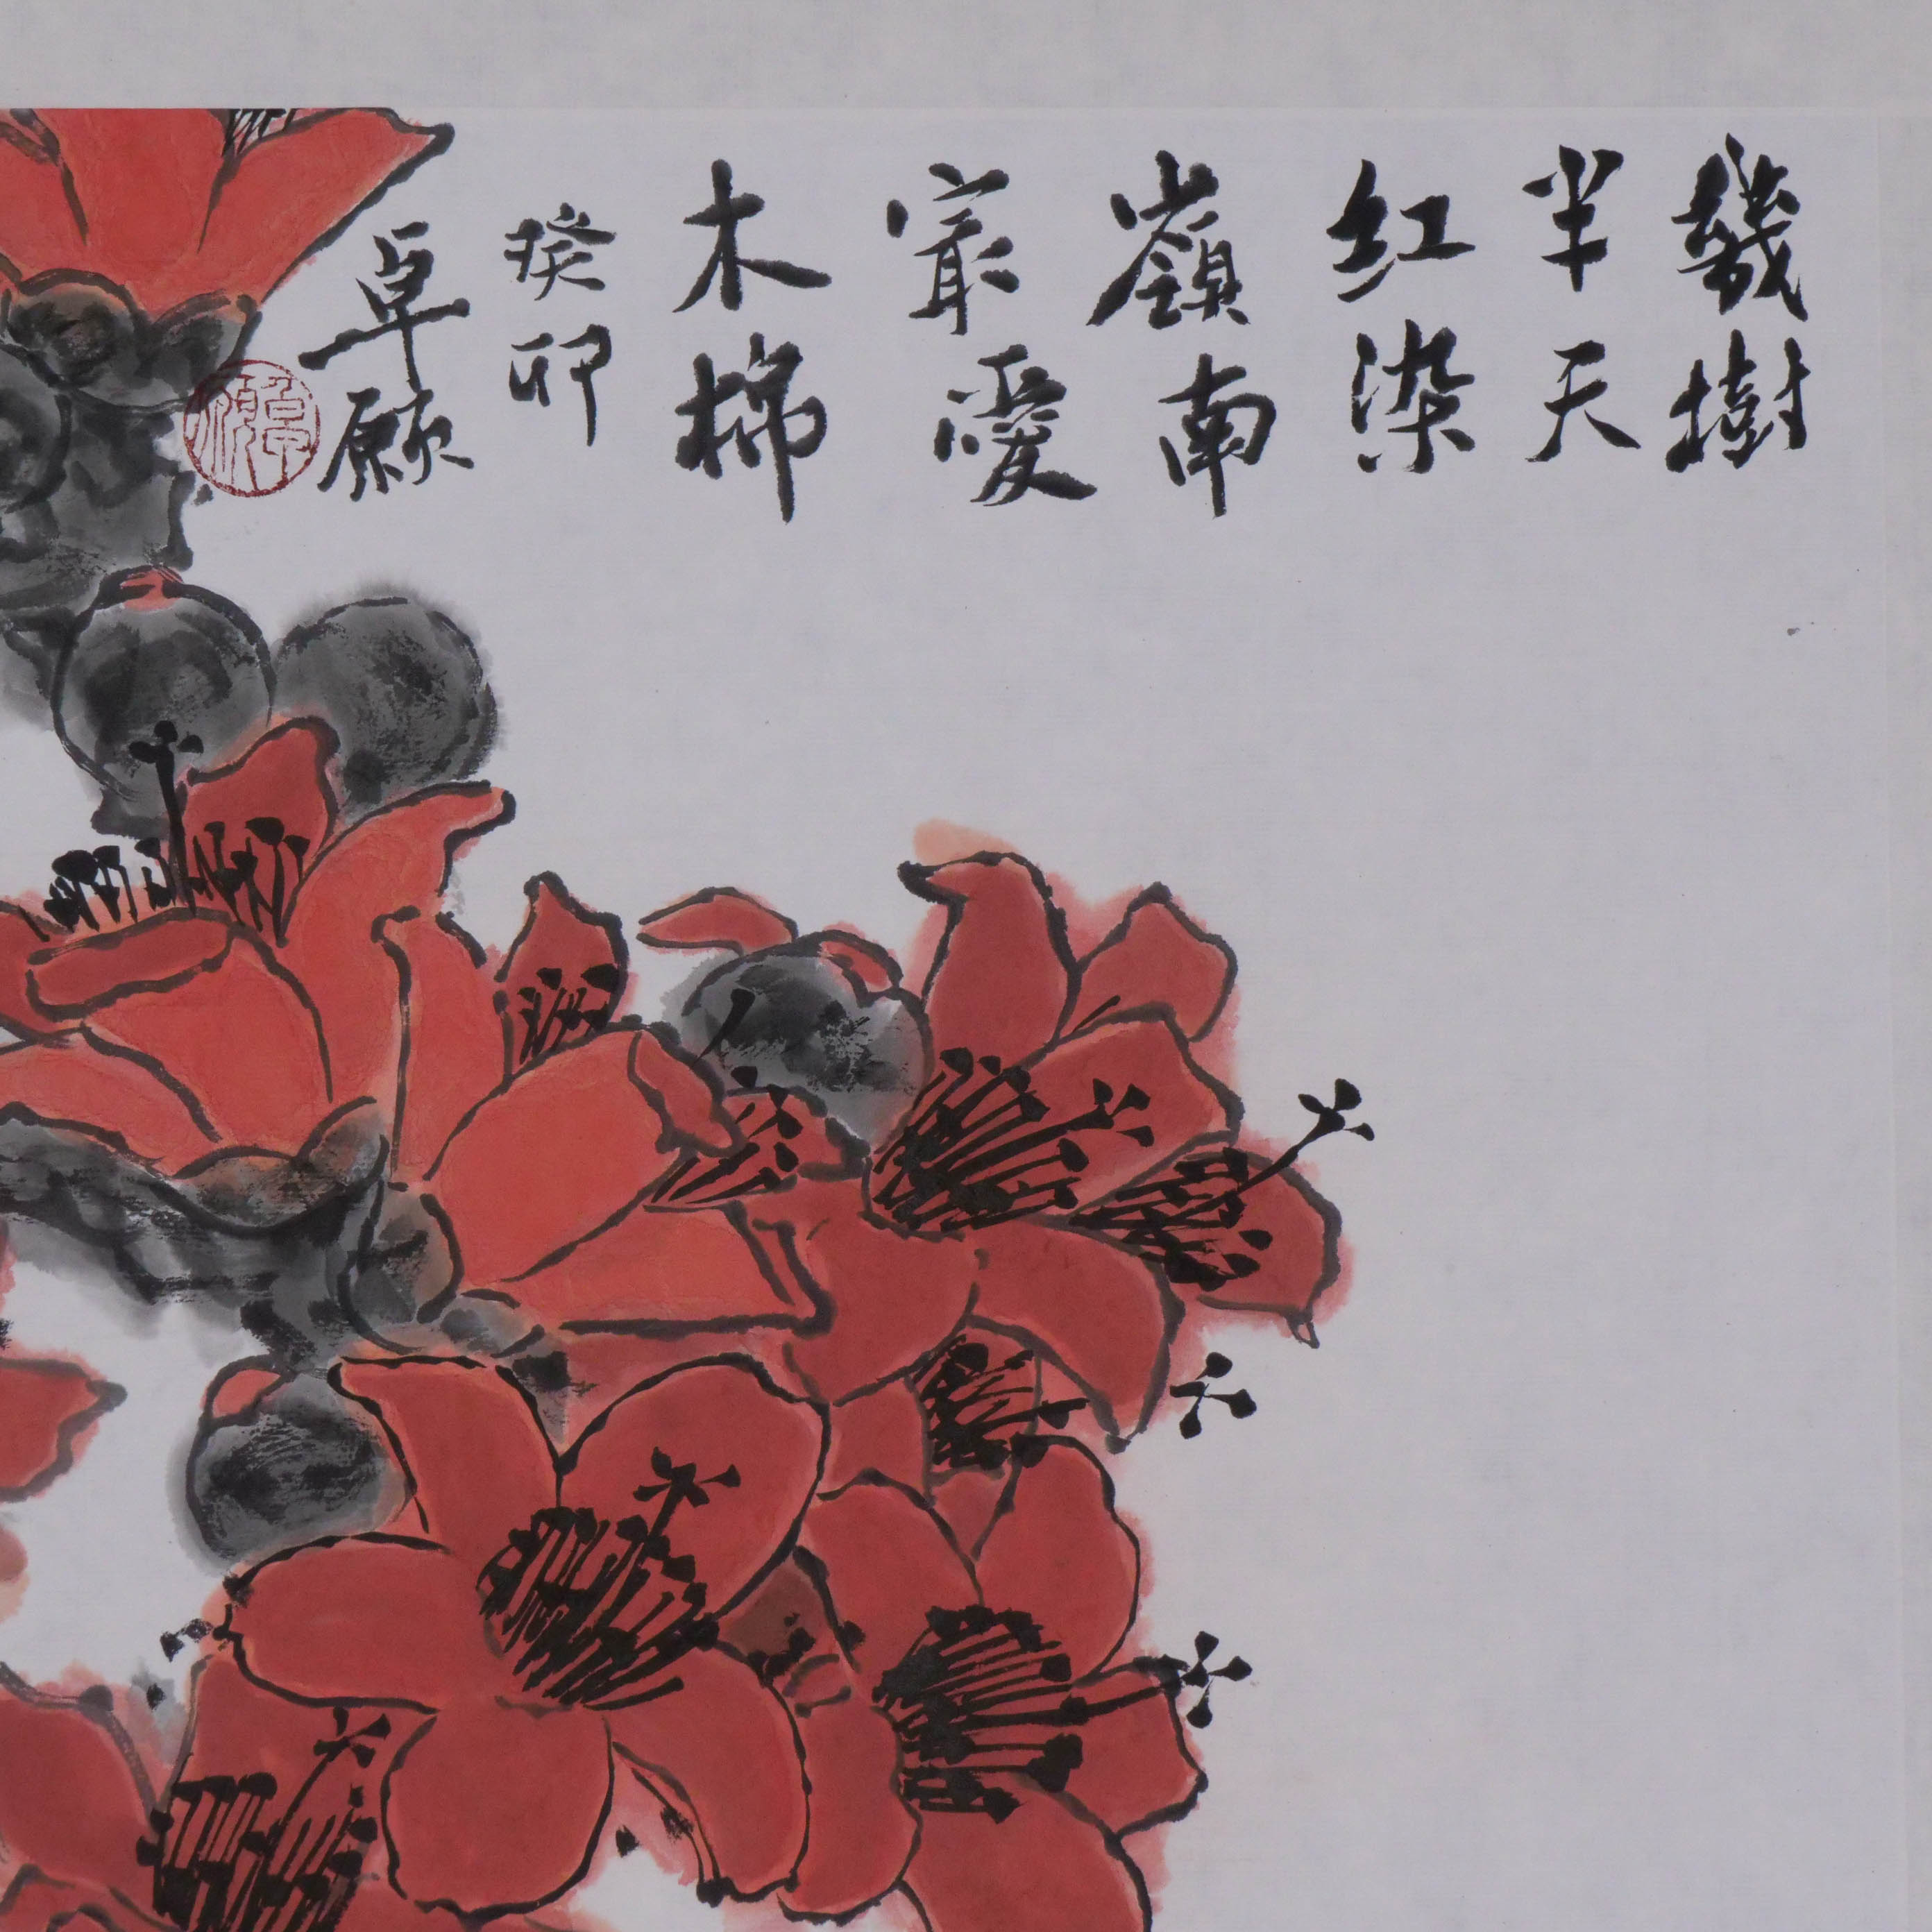 幾樹
半天
红染
嶺南
寂愛
木棉
癸卯
卓願